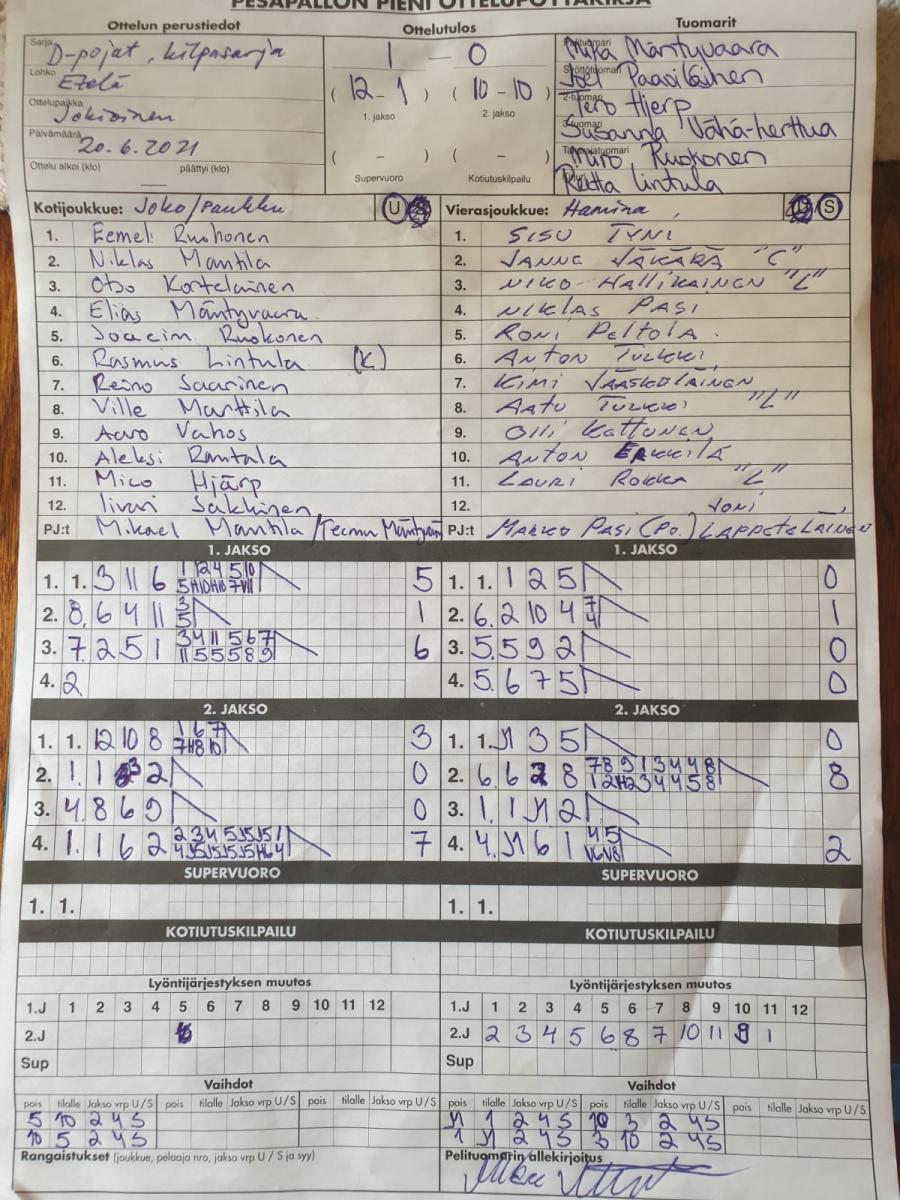 PESÄPALLON PIENI OTTELUPÖYTÄKIRJA
Ottelun perustiedot
Ottelutulos
Tuomarit
Sarja D-pojat, kilpasarja
Lohko Etelä
Ottelupaikka Jokioinen
Päivämäärä 20.6.2021
Ottelu alkoi (klo) — päättyi (klo)
1 — 0
( 12 - 1 ) ( 10 - 10 )
1. jakso 2. jakso
( - ) ( - )
Supervuoro Kotiutuskilpailu
Mika Mäntyvaara
Syöttötuomari Joel Paaviläinen
2-tuomari Tero Hjerp
3-tuomari Susanna Vähä-herttua
Takarajatuomari Miro Ruokonen
Reetta Lintula
Kotijoukkue: Joko/Paukku U S
1. Eemeli Ruohonen
2. Niklas Mantila
3. Otso Kortelainen
4. Elias Mäntyvaara
5. Joacim Ruokonen
6. Rasmus Lintula (K)
7. Reino Saarinen
8. Ville Marttila
9. Aaro Vahos
10. Aleksi Rantala
11. Mico Hjärp
12. Iivari Sakkinen
PJ:t Mikael Mantila / Teemu
Vierasjoukkue: Hamina, U S
1. SISU TYNI
2. JANNE JÄKÄRÄ "C"
3. NIKO HALLIKAINEN "L"
4. NIKLAS PASI
5. RONI PELTOLA
6. ANTON TURKKI
7. KIMI VÄÄSKELÄINEN
8. AATU TURKKI "L"
9. OLLI KETTUNEN
10. ANTON ERKKILÄ
11. LAURI ROKKA "L"
12. JONI
PJ:t MARKO PASI (PO.) LAPPETELÄINEN
1. JAKSO
1. 1. 3 11 6 5
2. 8. 6 4 11 3 5 1
3. 7. 2 5 1 3 4 11 5 6 7 11 5 5 5 8 9 6
4. 2
1. JAKSO
1. 1. 1 2 5 0
2. 6. 2 10 4 7 4 1
3. 5. 5 9 2 0
4. 5. 6 7 5 0
2. JAKSO
1. 1. 12 10 8 1 6 7 3
2. 1. 1 3 2 0
3. 4. 8 6 9 0
4. 1. 1 6 2 7
2. JAKSO
1. 1. 11 3 5 0
2. 6. 6 8 7 8 9 1 3 4 4 8 8
3. 1. 1 11 2
4. 4. 11 6 1 4 5 2
SUPERVUORO
1. 1.
SUPERVUORO
1. 1.
KOTIUTUSKILPAILU
KOTIUTUSKILPAILU
Lyöntijärjestyksen muutos
1.J 1 2 3 4 5 6 7 8 9 10 11 12
2.J
Sup
Lyöntijärjestyksen muutos
1.J 1 2 3 4 5 6 7 8 9 10 11 12
2.J 2 3 4 5 6 8 7 10 11 9 1
Sup
Vaihdot
pois tilalle Jakso vrp U / S pois tilalle Jakso vrp U / S pois tilalle Jakso vrp U / S
5 10 2 4 S
10 5 2 4 S
Rangaistukset (joukkue, pelaaja nro, jakso vrp U / S ja syy)
Vaihdot
pois tilalle Jakso vrp U / S pois tilalle Jakso vrp U / S pois tilalle Jakso vrp U / S
11 1 2 4 S 10 3 2 4 S
1 11 2 4 S 3 10 2 4 S
Pelituomarin allekirjoitus